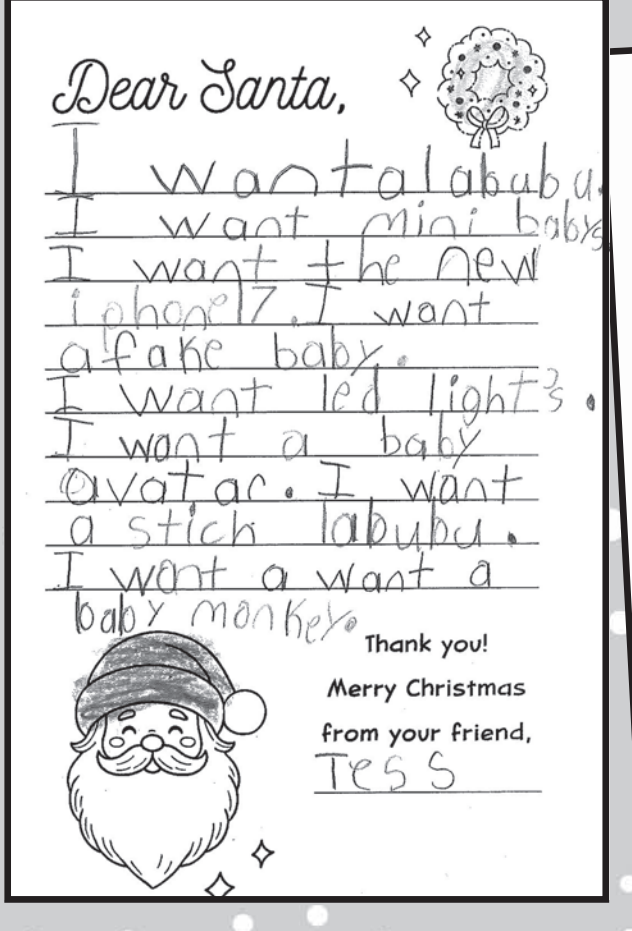 Dear Santa,
I want a labubu.
I want mini babys
I want the new
iphone17. I want
a fake baby.
I want led light's.
I want a baby
avatar. I want
a stich labubu.
I want a want a
baby monkey.
Thank you!
Merry Christmas
from your friend,
Tess